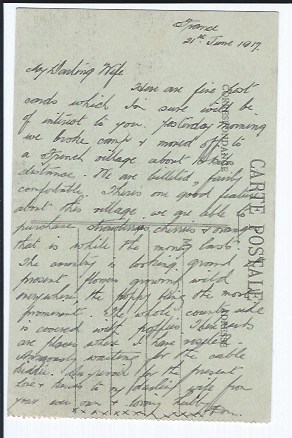 France
21st June 1917.
My Darling Wife
Here are five post
cards which I'm sure will be
of interest to you. Yesterday morning
we broke camp & moved off to
a French village about
distance. We are billeted fairly
comfortable. There's one good feature
about this village, we are able to
purchase strawberries, cherries & oranges
that is while the money lasts.
The country is looking grand at
present flowers growing wild
everywhere, the poppy being the most
prominent. The whole country side
is covered with poppies.
are places where I have
Anxiously waiting for the cable
the present
love & kisses to my darling wife from
your ever own & loving hubby
x x x x x x x x
CARTE POSTALE
CORRESPONDANCE
ADRESSE